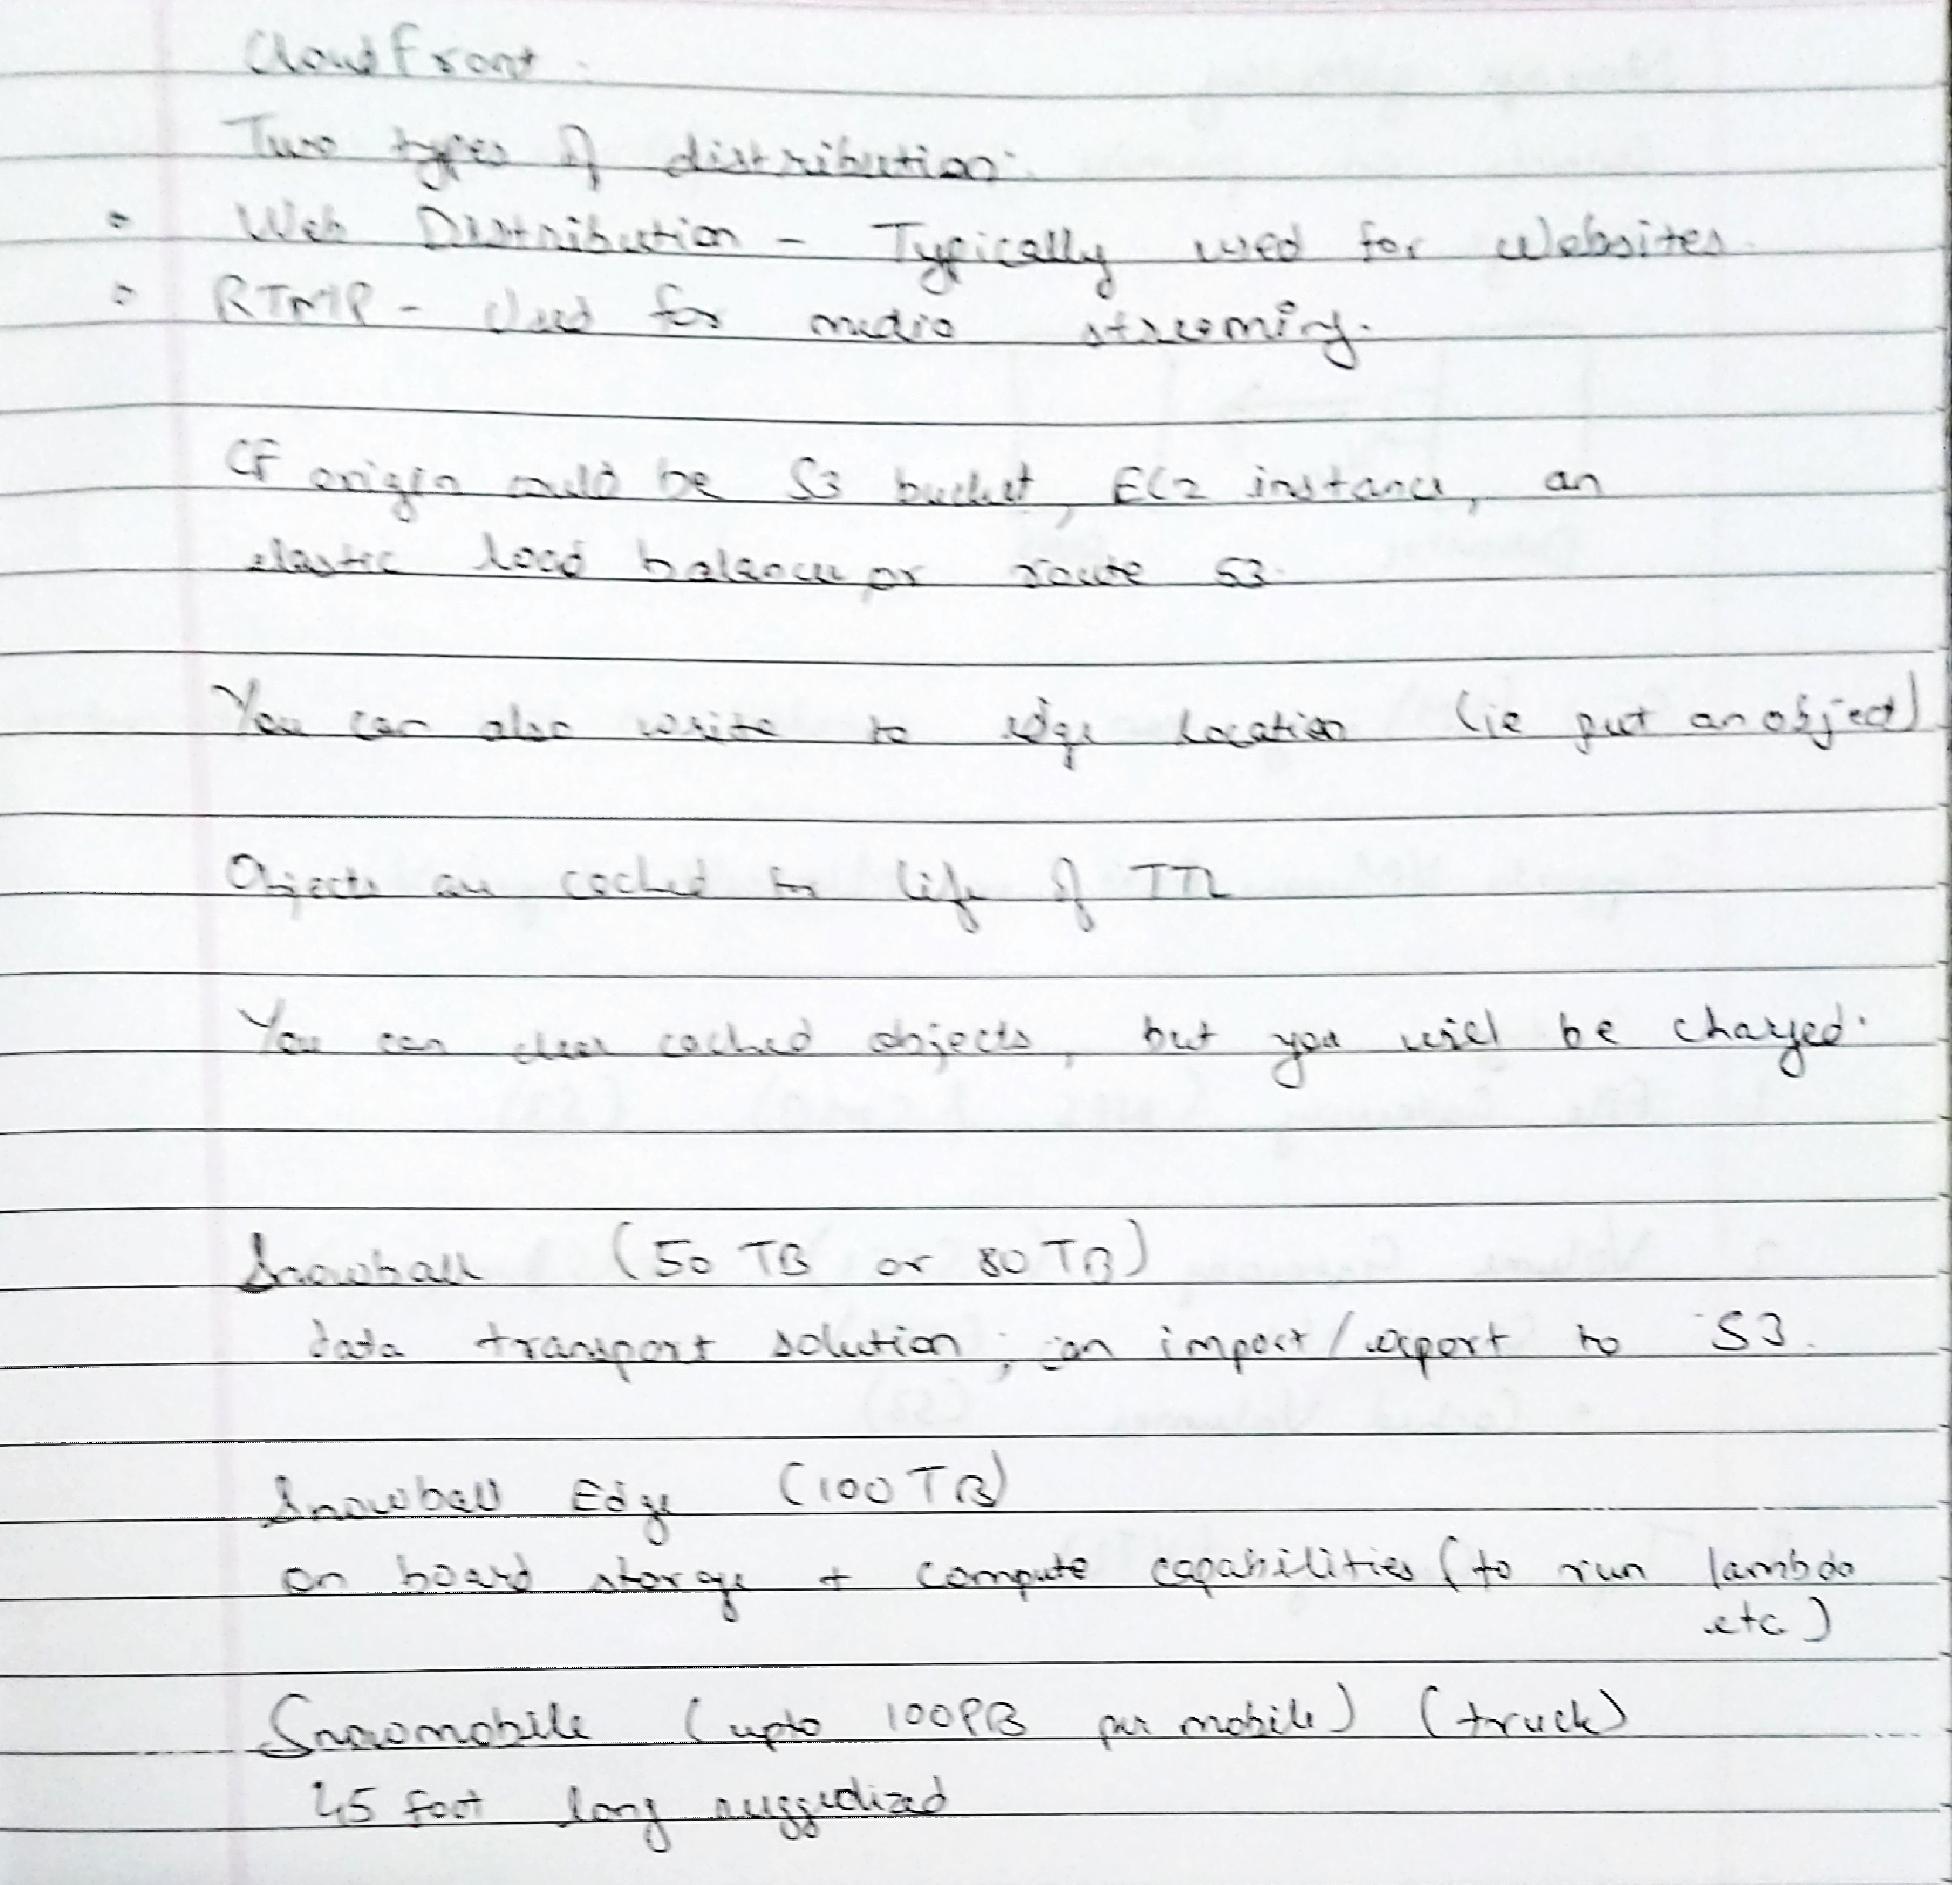 CloudFront:
Two types of distribution:
Web Distribution - Typically used for websites.
RTMP - Used for media streaming.
CF origin could be S3 bucket, EC2 instance, an
elastic load balancer or route 53.
You can also write to edge location (ie put an object)
Objects are cached for life of TTL
You can clear cached objects, but you will be charged.
Snowball (50 TB or 80 TB)
data transport solution, can import/export to S3.
Snowball Edge (100 TB)
on board storage + compute capabilities (to run lambda
etc.)
Snowmobile (upto 100PB per mobile) (truck)
45 foot long ruggedized